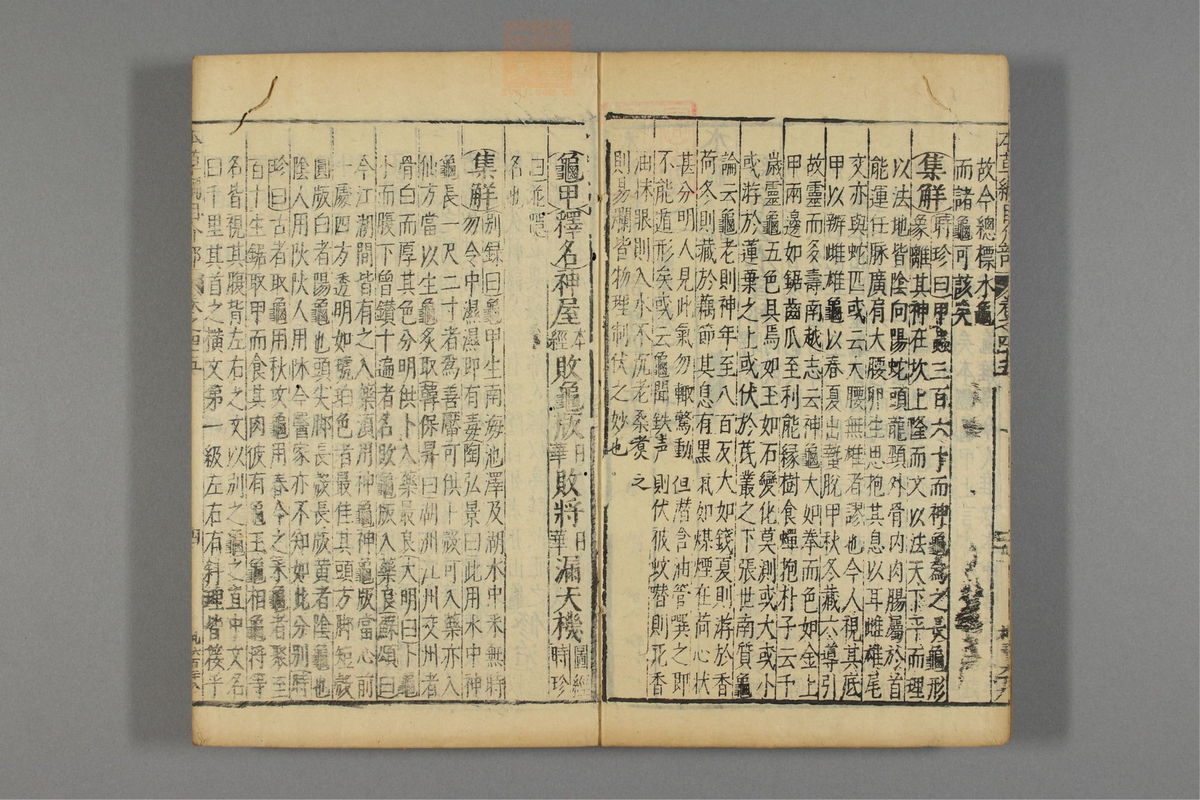 故今總標水龜
而諸龜可該矣
集解時珍曰甲蟲三百六十而神龜為之長龜形
象離其神在坎上隆而文以法天下平而理
以法地背陰向陽蛇頭龍頸外骨内肉腸屬於首
能運任脉廣肩大腰卵生思抱其息以耳雌雄尾
交亦與蛇匹或云大腰無雄者謬也今人視其底
甲以辨雌雄龜以春夏出蟄脫甲秋冬藏穴導引
故靈而多壽南越志云神龜大如拳而色如金上
甲兩邊如鋸齒爪至利能緣樹食蟬抱朴子云千
歲靈龜五色具焉如玉如石變化莫測或大或小
或游於蓮葉之上或伏於蓍叢之下張世南質龜
論云龜老則神年至八百反大如錢夏則游於香
荷冬則藏於藕節其息有黑氣如煤煙在荷心狀
甚分明人見此氣勿輙驚動但潜含油管噀之即
不能遁形矣或云龜聞鉄声則伏被蚊噆則死香
油抹眼則入水不沉老桑煑之
則易爛皆物理制伏之妙也
龜甲釋名神屋本經敗龜版日華敗將日華漏天機圖經時珍
曰並隱
名也
集解别録曰龜甲生南海池澤及湖水中采無時
勿令中濕濕即有毒陶弘景曰此用水中神
龜長一尺二寸者為善厴可供卜殼可入藥亦入
仙方當以生龜炙取韓保昇曰湖州江州交州者
骨白而厚其色分明供卜入藥最良大明曰卜龜
小而腹下曾鑽十遍者名敗龜版入藥良蘇頌曰
今江湖間皆有之入藥須用神龜神龜版當心前
一處四方透明如琥珀色者最佳其頭方脚短殼
圓版白者陽龜也頭尖脚長殼長版黄者陰龜也
陰人用陽陽人用陰今醫家亦不知如此分別時
珍曰古者取龜用秋攻龜用春今之采龜者聚至
百十生鋸取甲而食其肉彼有龜王龜相龜將等
名皆視其腹背左右之文以别之龜之直中文名
曰千里其首之横文第一級左右有斜理皆接乎